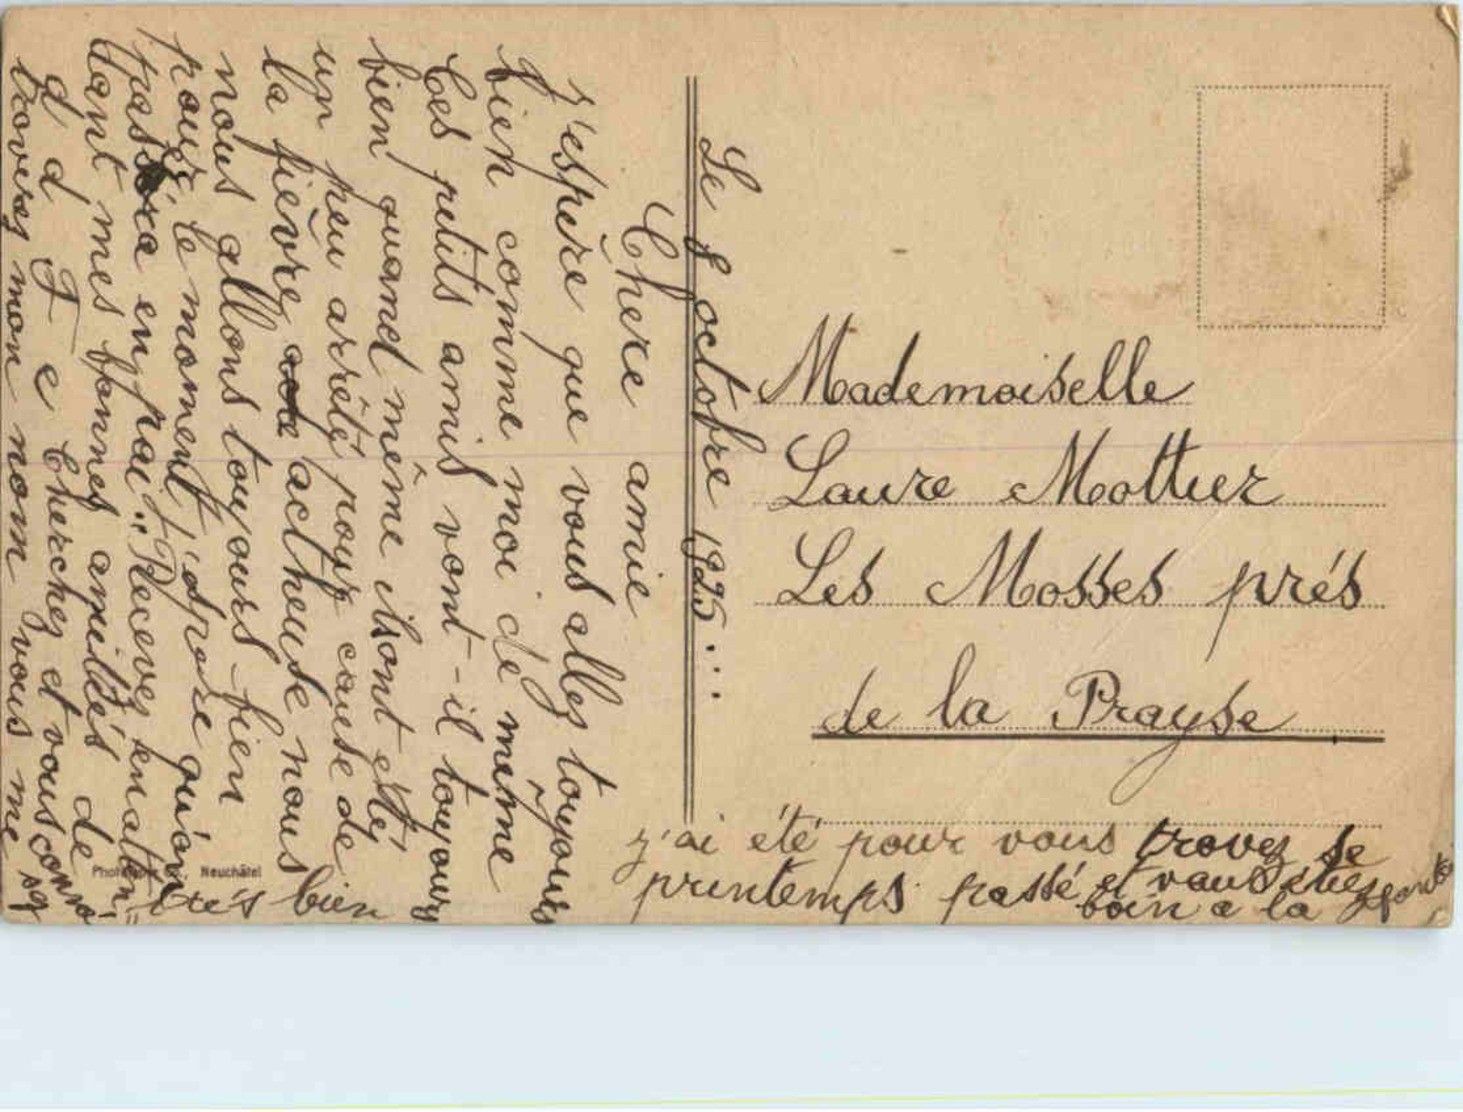 Le 8 octobre 1925...
Chere amie
J'espère que vous allez toujours
bien comme moi de même
Les petits amis vont-il toujours
bien quand même ilsont été
un peu arrêté pour cause de
la fièvre actheuse nous
nous allons toujours bien
pour le moment J'éspère qu'on
passera en paix. Recevez enatten-
dant mes bonnes amitiés de
d d F e Cherchez et vous
trovez mon nom vous me
très bien
Mademoiselle
Laure Mottier
Les Mosses prés
de la Prayse
j'ai été pour vous trovez se
printemps passé et vous étiez
loin a la
Neuchâtel